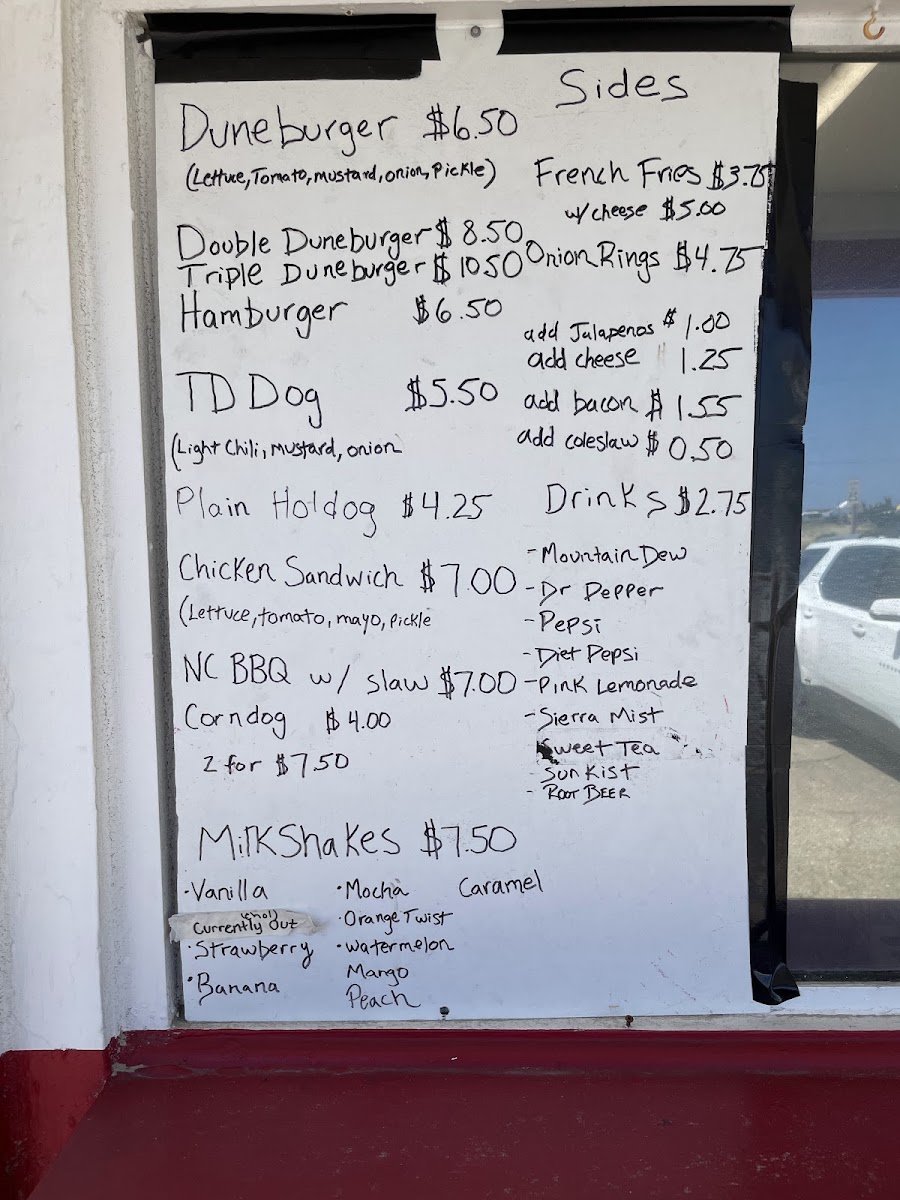 Duneburger $6.50
(Lettuce, Tomato, mustard, onion, Pickle)
Double Duneburger $ 8.50
Triple Duneburger $ 10.50
Hamburger $6.50
TD Dog $5.50
(Light Chili, mustard, onion
Plain Hotdog $4.25
Chicken Sandwich $7.00
(Lettuce, tomato, mayo, pickle
NC BBQ w/ slaw $7.00
Corndog $4.00
2 for $7.50
Sides
French Fries $3.75
w/ cheese $5.00
Onion Rings $4.75
add Jalapenos $1.00
add cheese 1.25
add bacon $1.55
add coleslaw $0.50
Drinks $2.75
- Mountain Dew
- Dr Pepper
- Pepsi
- Diet Pepsi
- Pink Lemonade
- Sierra Mist
Sweet Tea
- Sunkist
- Root Beer
Milkshakes $7.50
· Vanilla
Currently Out
· Strawberry
· Banana
· Mocha
· Orange Twist
· Watermelon
Mango
Peach
Caramel